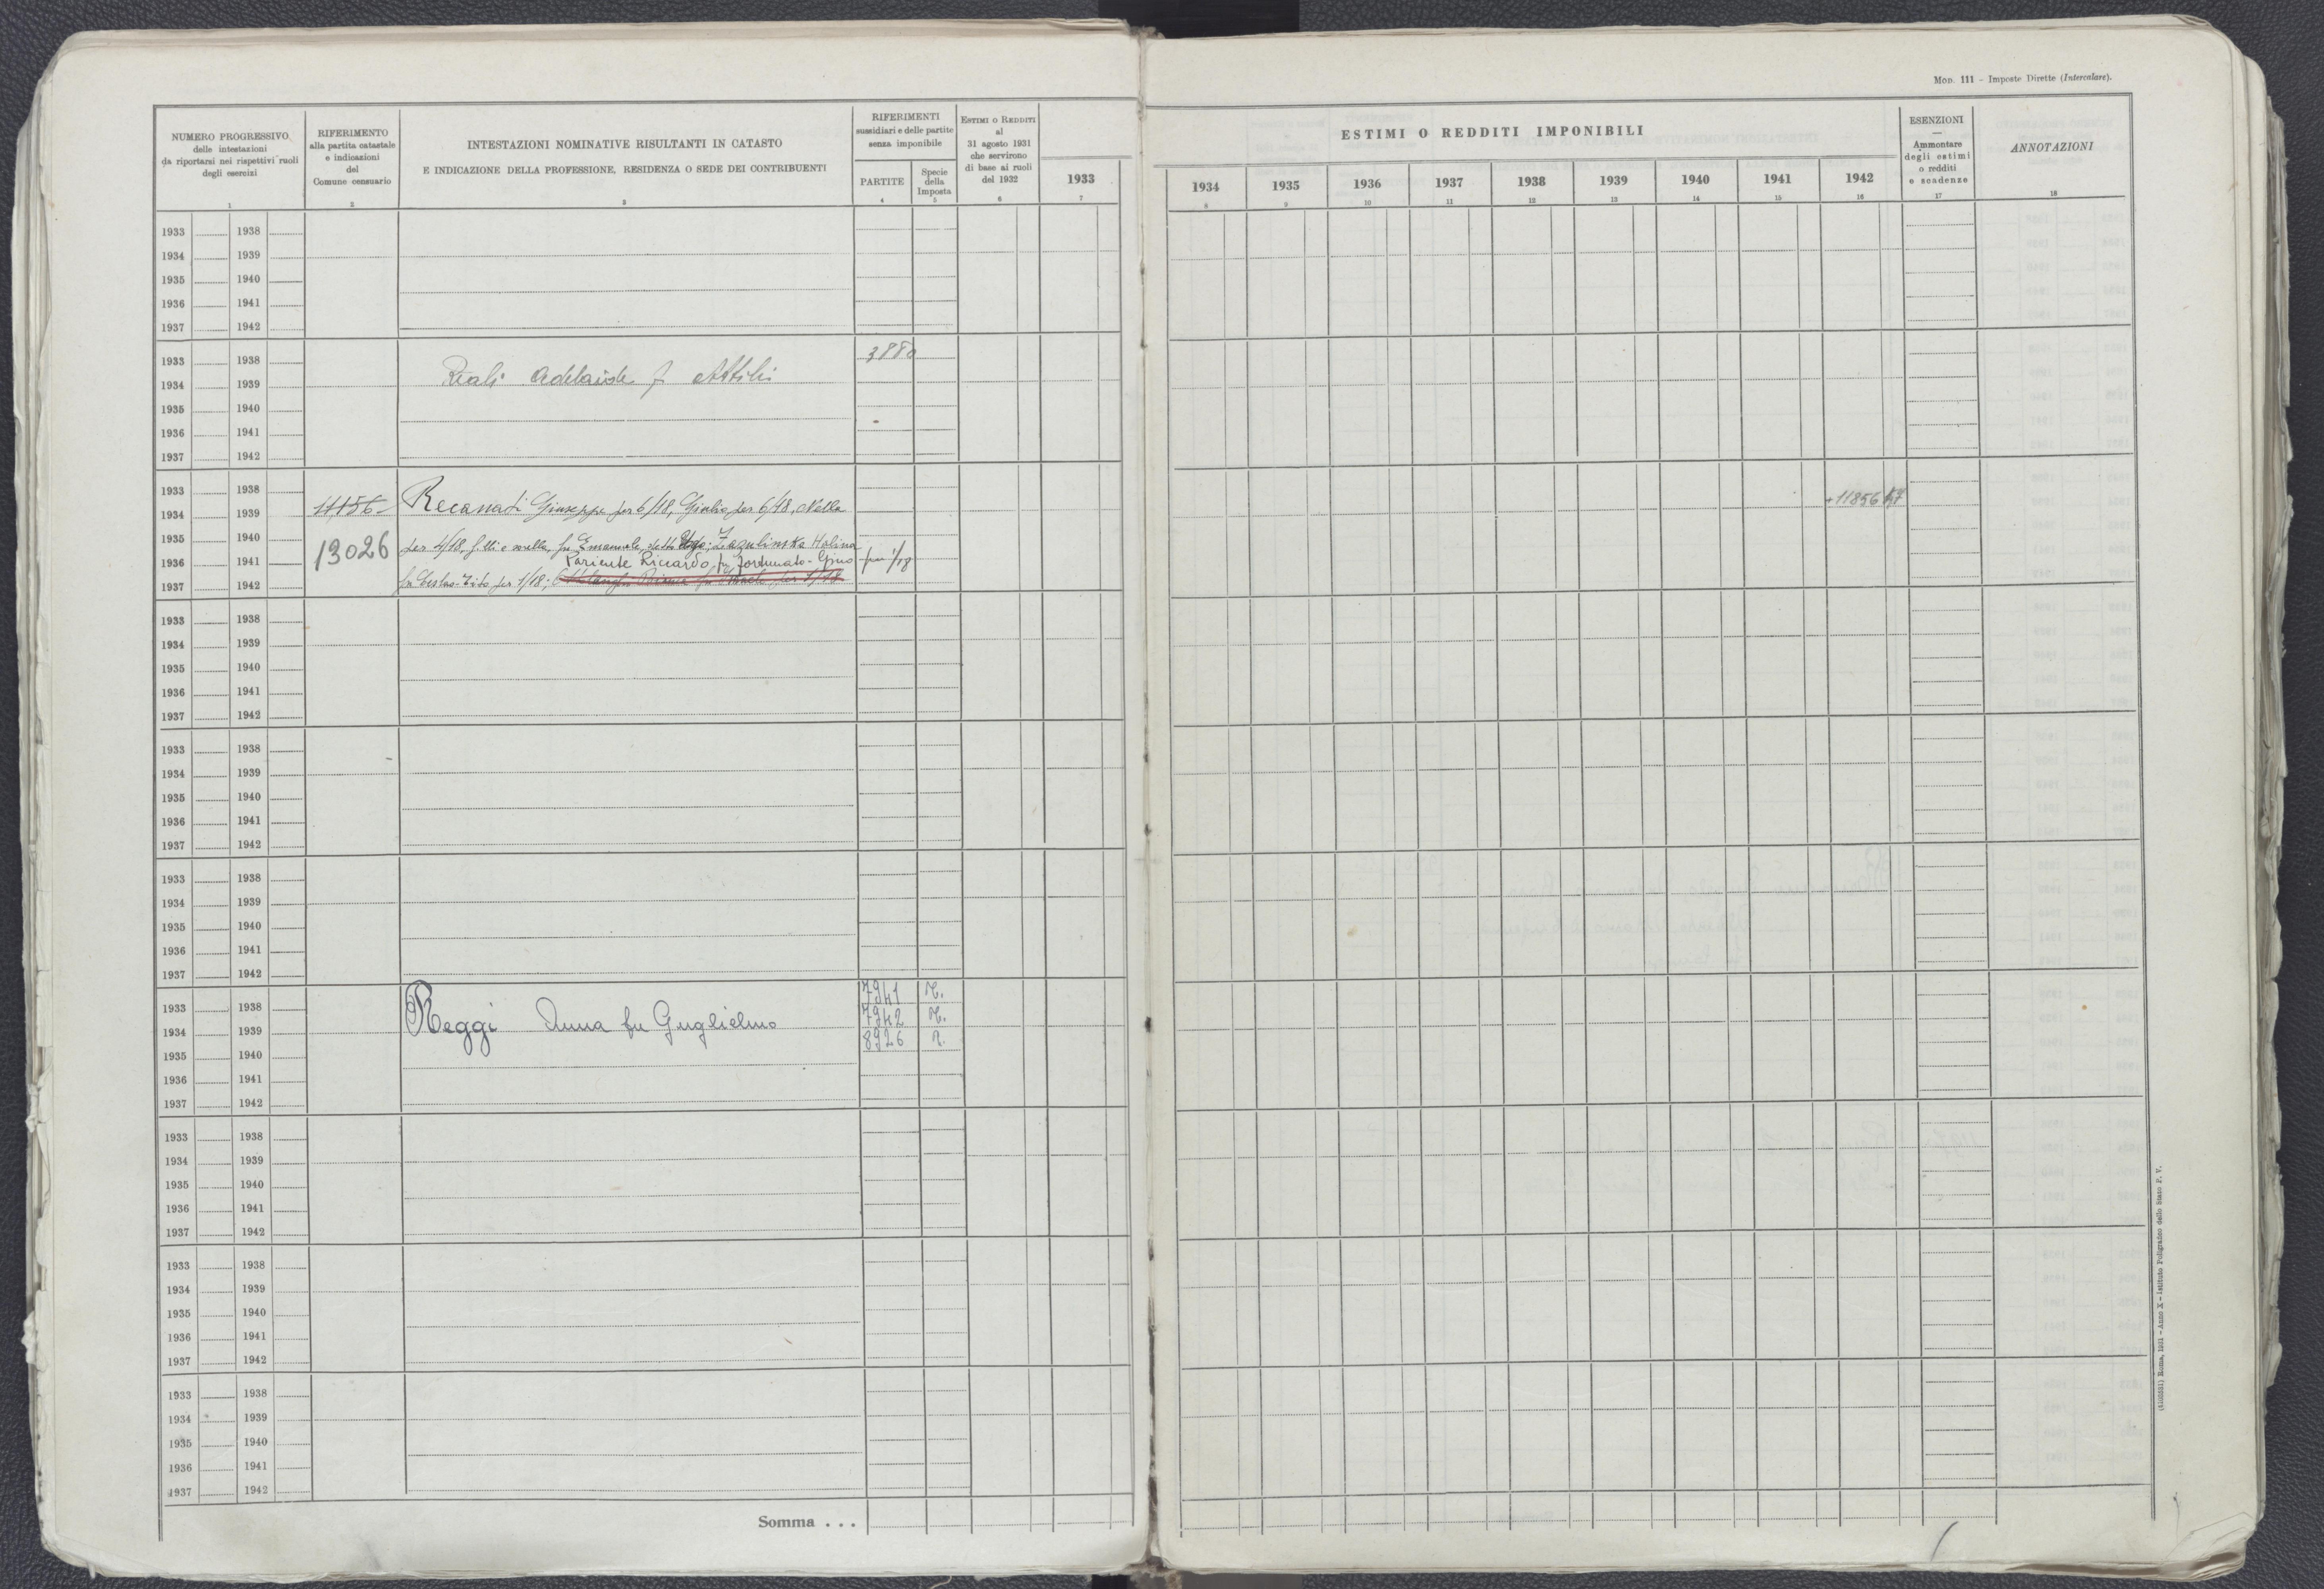 MOD. 111 - Imposte Dirette (Intercalare).
NUMERO PROGRESSIVO
delle intestazioni
da riportarsi nei rispettivi ruoli
degli esercizi
1
RIFERIMENTO
alla partita catastale
e indicazioni
del
Comune censuario
2
INTESTAZIONI NOMINATIVE RISULTANTI IN CATASTO
E INDICAZIONE DELLA PROFESSIONE, RESIDENZA O SEDE DEI CONTRIBUENTI
3
RIFERIMENTI
sussidiari e delle partite
senza imponibile
PARTITE
4
Specie
della
Imposta
5
ESTIMI O REDDITI
al
31 agosto 1931
che servirono
di base ai ruoli
del 1932
6
ESTIMI O REDDITI IMPONIBILI
1933
7
1934
8
1935
9
1936
10
1937
11
1938
12
1939
13
1940
14
1941
15
1942
16
ESENZIONI
—
Ammontare
degli estimi
o redditi
e scadenze
17
ANNOTAZIONI
18
1933 1938
1934 1939
1935 1940
1936 1941
1937 1942
1933 1938 3880
1934 1939 Reali Adelaide f Attili
1935 1940
1936 1941
1937 1942
1933 1938
1934 1939 11156 Recanati Giuseppe per 6/18, Giulio per 6/18, Nella +11856
1935 1940 13026 per 4/18, f.lli e sorella fu Emanuele, Zazulinska Halina
1936 1941 Pariente Riccardo fu Fortunato - Gino per 1/18
1937 1942 fu Ceslao-Tito per 1/18;
1933 1938
1934 1939
1935 1940
1936 1941
1937 1942
1933 1938
1934 1939
1935 1940
1936 1941
1937 1942
1933 1938
1934 1939
1935 1940
1936 1941
1937 1942
7941 R.
1933 1938 7942 R.
1934 1939 Reggi Anna fu Guglielmo 8926 R.
1935 1940
1936 1941
1937 1942
1933 1938
1934 1939
1935 1940
1936 1941
1937 1942
1933 1938
1934 1939
1935 1940
1936 1941
1937 1942
1933 1938
1934 1939
1935 1940
1936 1941
1937 1942
Somma . . .
Roma, 1931 - Anno X - Istituto Poligrafico dello Stato P. V.